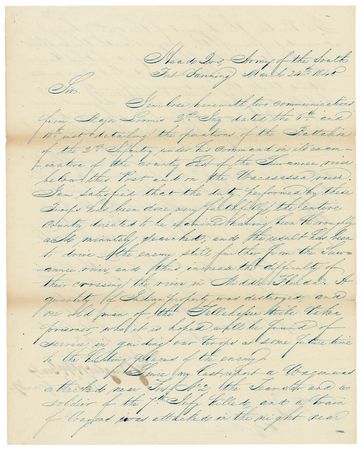 Head Qrs Army of the South
Fort Fanning March 24th 1840
Sir,
I enclose herewith two communications
from Major Loomis 2nd Infy dated the 5th and
10th inst detailing the operations of the Battalion
of the 2nd Infantry under his command in its exam-
ination of the Country East of the Suwannee river
below this Post and on the Wacasassa river
I am satisfied that the duty performed by these
Troops has been done very faithfully, the entire
Country directed to be examined having been thoroughly
and minutely searched, and the result has been
to drive the enemy still further from the Suwa-
nnee river and thus increase the difficulty of
their crossing the river in Middle Florida. A
quantity of Indian property was destroyed and
one old man of the Tallahassee tribe taken
prisoner, who it is hoped will be found of
service in guiding our troops at some future time
to the hiding places of the enemy
Since my last report a Wagon was
attacked near No 2 the Teamster and a
soldier of the 7th Infy killed, and a train
of Wagons was attacked in the night near